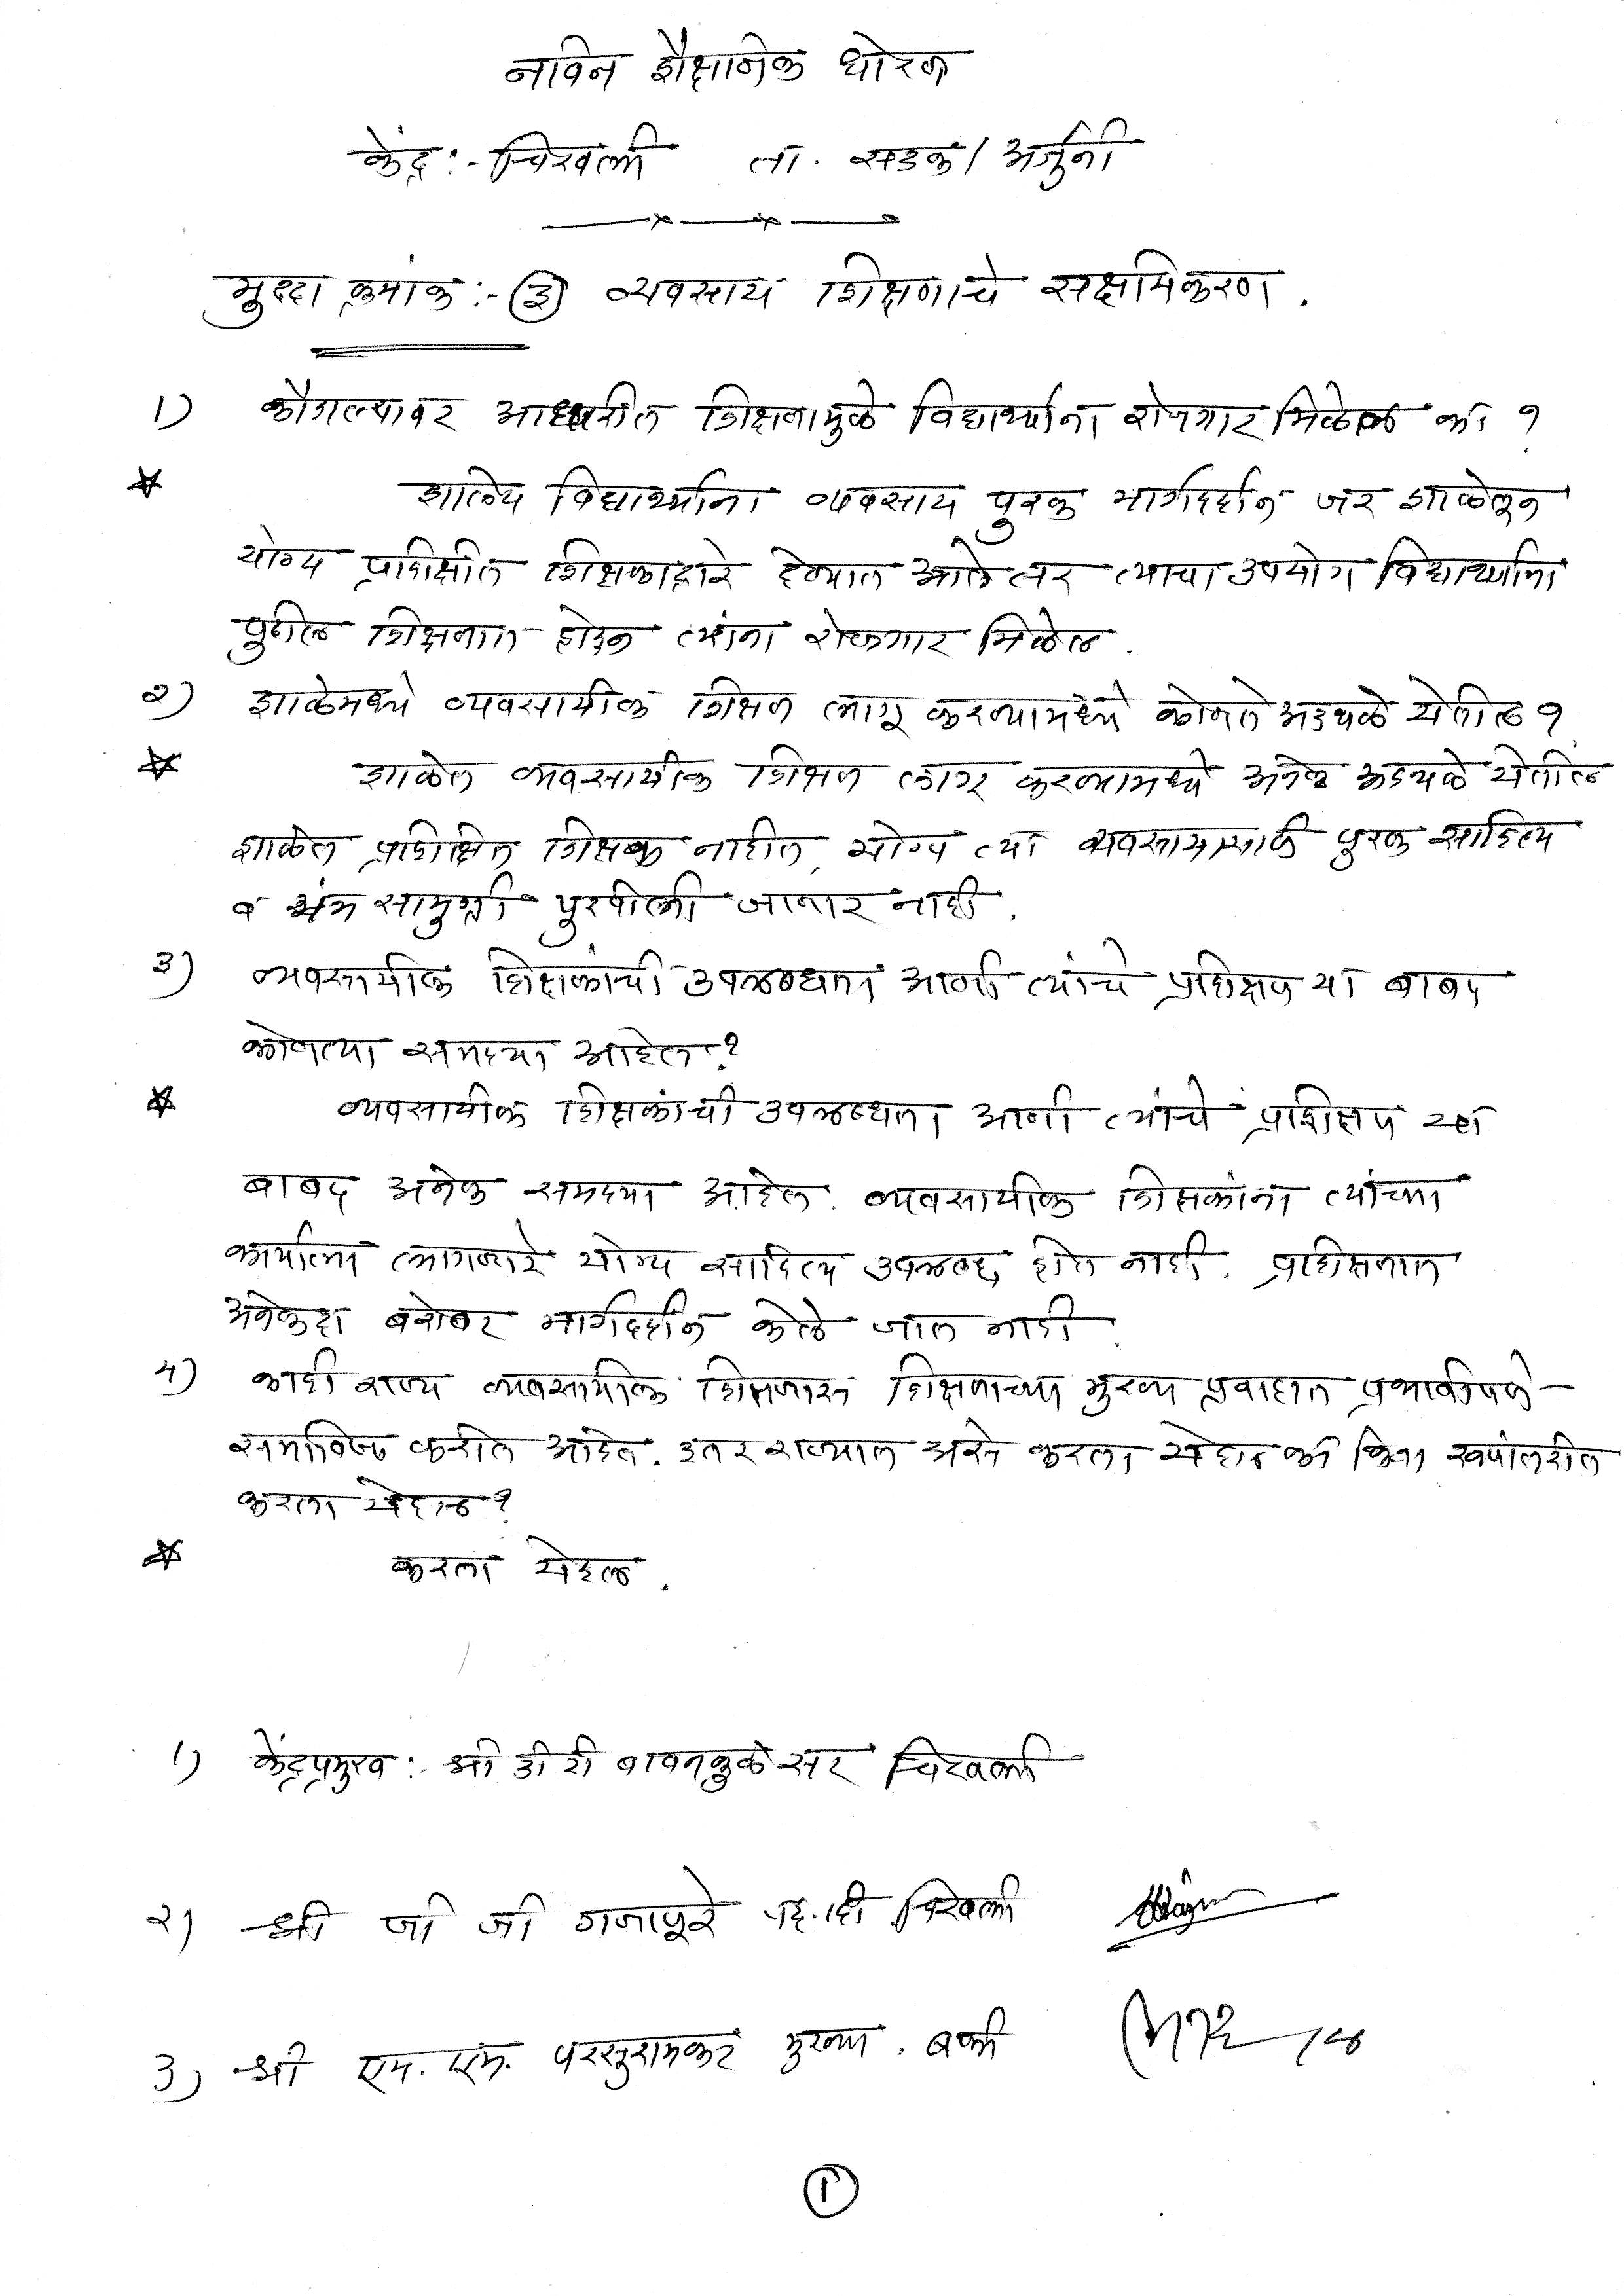 नविन शैक्षणिक धोरण
केंद्र :- चिखली ता. सडक/ अर्जुनी
मुद्दा क्रमांक :- (३) व्यवसाय शिक्षणाचे सक्षमिकरण .
1) कौशल्यावर आधारीत शिक्षणामुळे विद्यार्थ्यांना रोजगार मिळेल का ?
शालेय विद्यार्थ्यांना व्यवसाय पुरक मार्गदर्शन जर शाळेतून
योग्य प्रशिक्षीत शिक्षकाद्वारे देण्यात आले तर त्याचा उपयोग विद्यार्थ्यांना
पुढील शिक्षणात होऊन त्यांना रोजगार मिळेल .
२) शाळेमध्ये व्यवसायीक शिक्षण लागू करण्यामध्ये कोणते अडथळे येतील ?
शाळेत व्यवसायीक शिक्षण लागू करण्यामध्ये अनेक अडथळे येतील
शाळेत प्रशिक्षित शिक्षक नाहीत, योग्य त्या व्यवसायासाठी पुरक साहित्य
व यंत्र सामुग्री पुरवीली जाणार नाही .
३) व्यवसायीक शिक्षकांची उपलब्धता आणी त्यांचे प्रशिक्षण या बाबद
कोणत्या समस्या आहेत ?
व्यवसायीक शिक्षकांची उपलब्धता आणी त्यांचे प्रशिक्षण या
बाबद अनेक समस्या आहेत . व्यवसायीक शिक्षकांना त्यांच्या
कार्याला लागणारे योग्य साहित्य उपलब्ध होत नाही . प्रशिक्षणात
अनेकदा बरोबर मार्गदर्शन केले जात नाही .
4) काही राज्य व्यवसायीक शिक्षणास शिक्षणाच्या मुख्य प्रवाहात प्रभावीपणे
समाविष्ठ करीत आहेत . इतर राज्यात असे करता येईल का किंवा रूपांतरीत
करता येईल ?
करता येईल .
1) केंद्रप्रमुख :- श्री डी टी बावनकुळे सर चिखली
२) श्री जी जी गजापूरे चिखली
3) श्री एम. एम. परसुरामकर मुख्या .
(1)